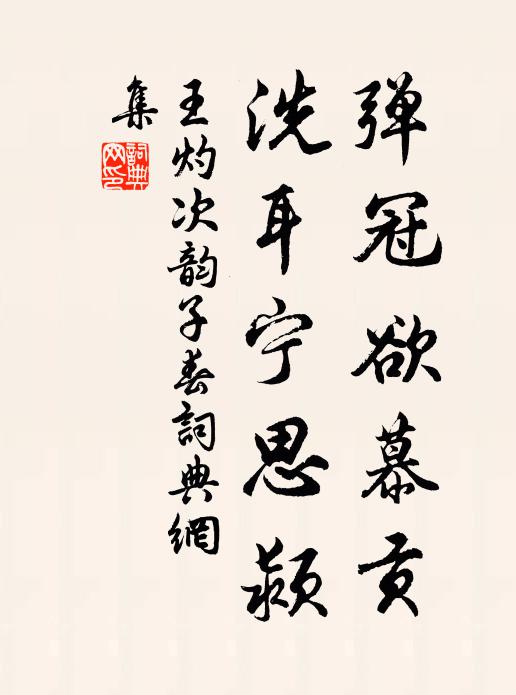 弹冠欲慕贡
洗耳宁思颍
王灼次韵子春詞典網
集
詞典
网印